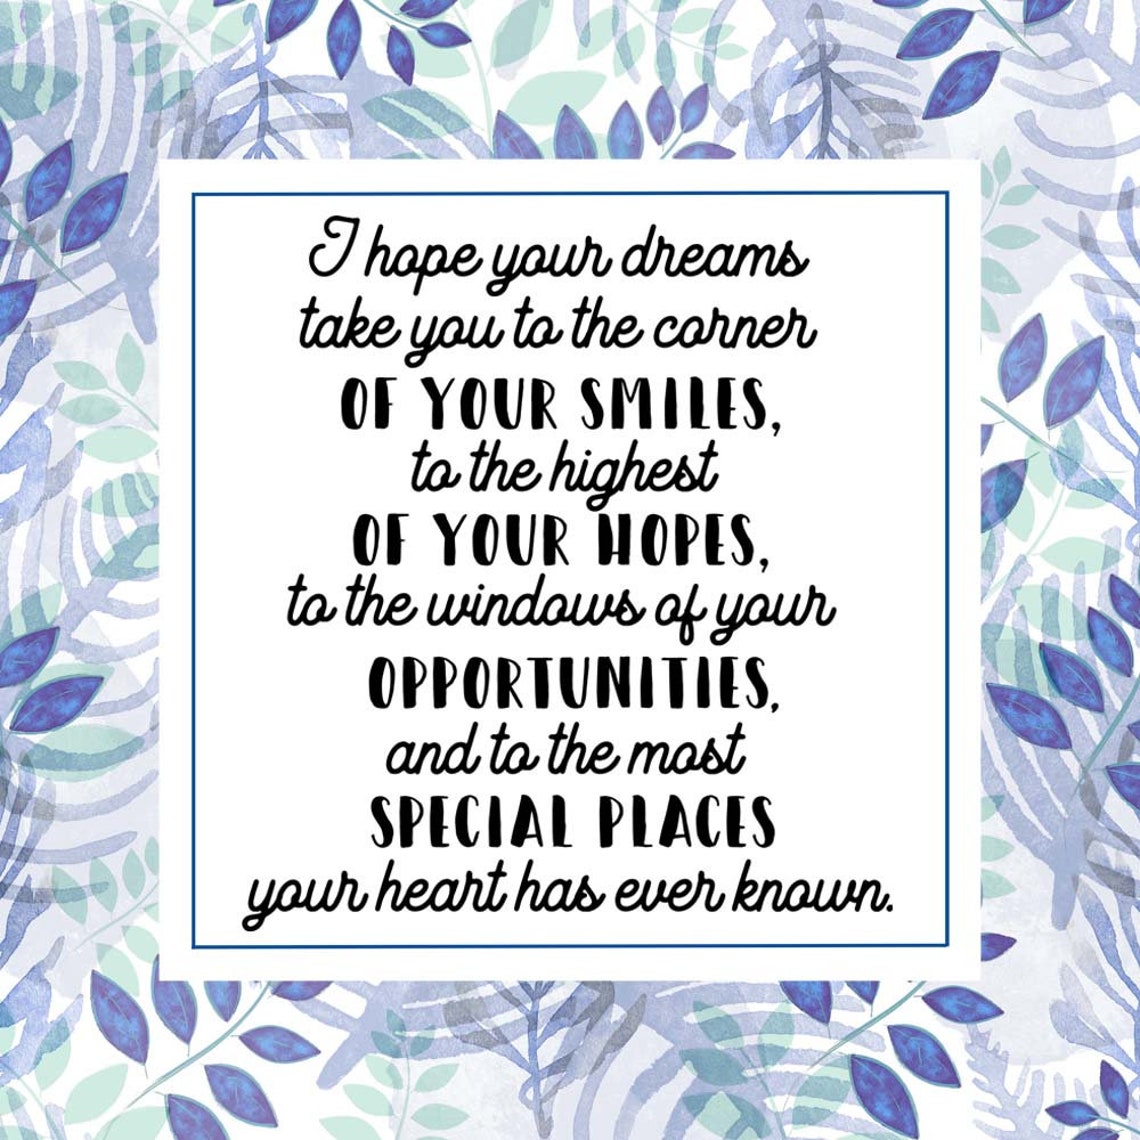 I hope your dreams
take you to the corner
OF YOUR SMILES,
to the highest
OF YOUR HOPES,
to the windows of your
OPPORTUNITIES,
and to the most
SPECIAL PLACES
your heart has ever known.